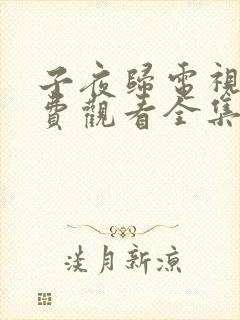 子夜歸電視
費觀看全集
淡月新涼